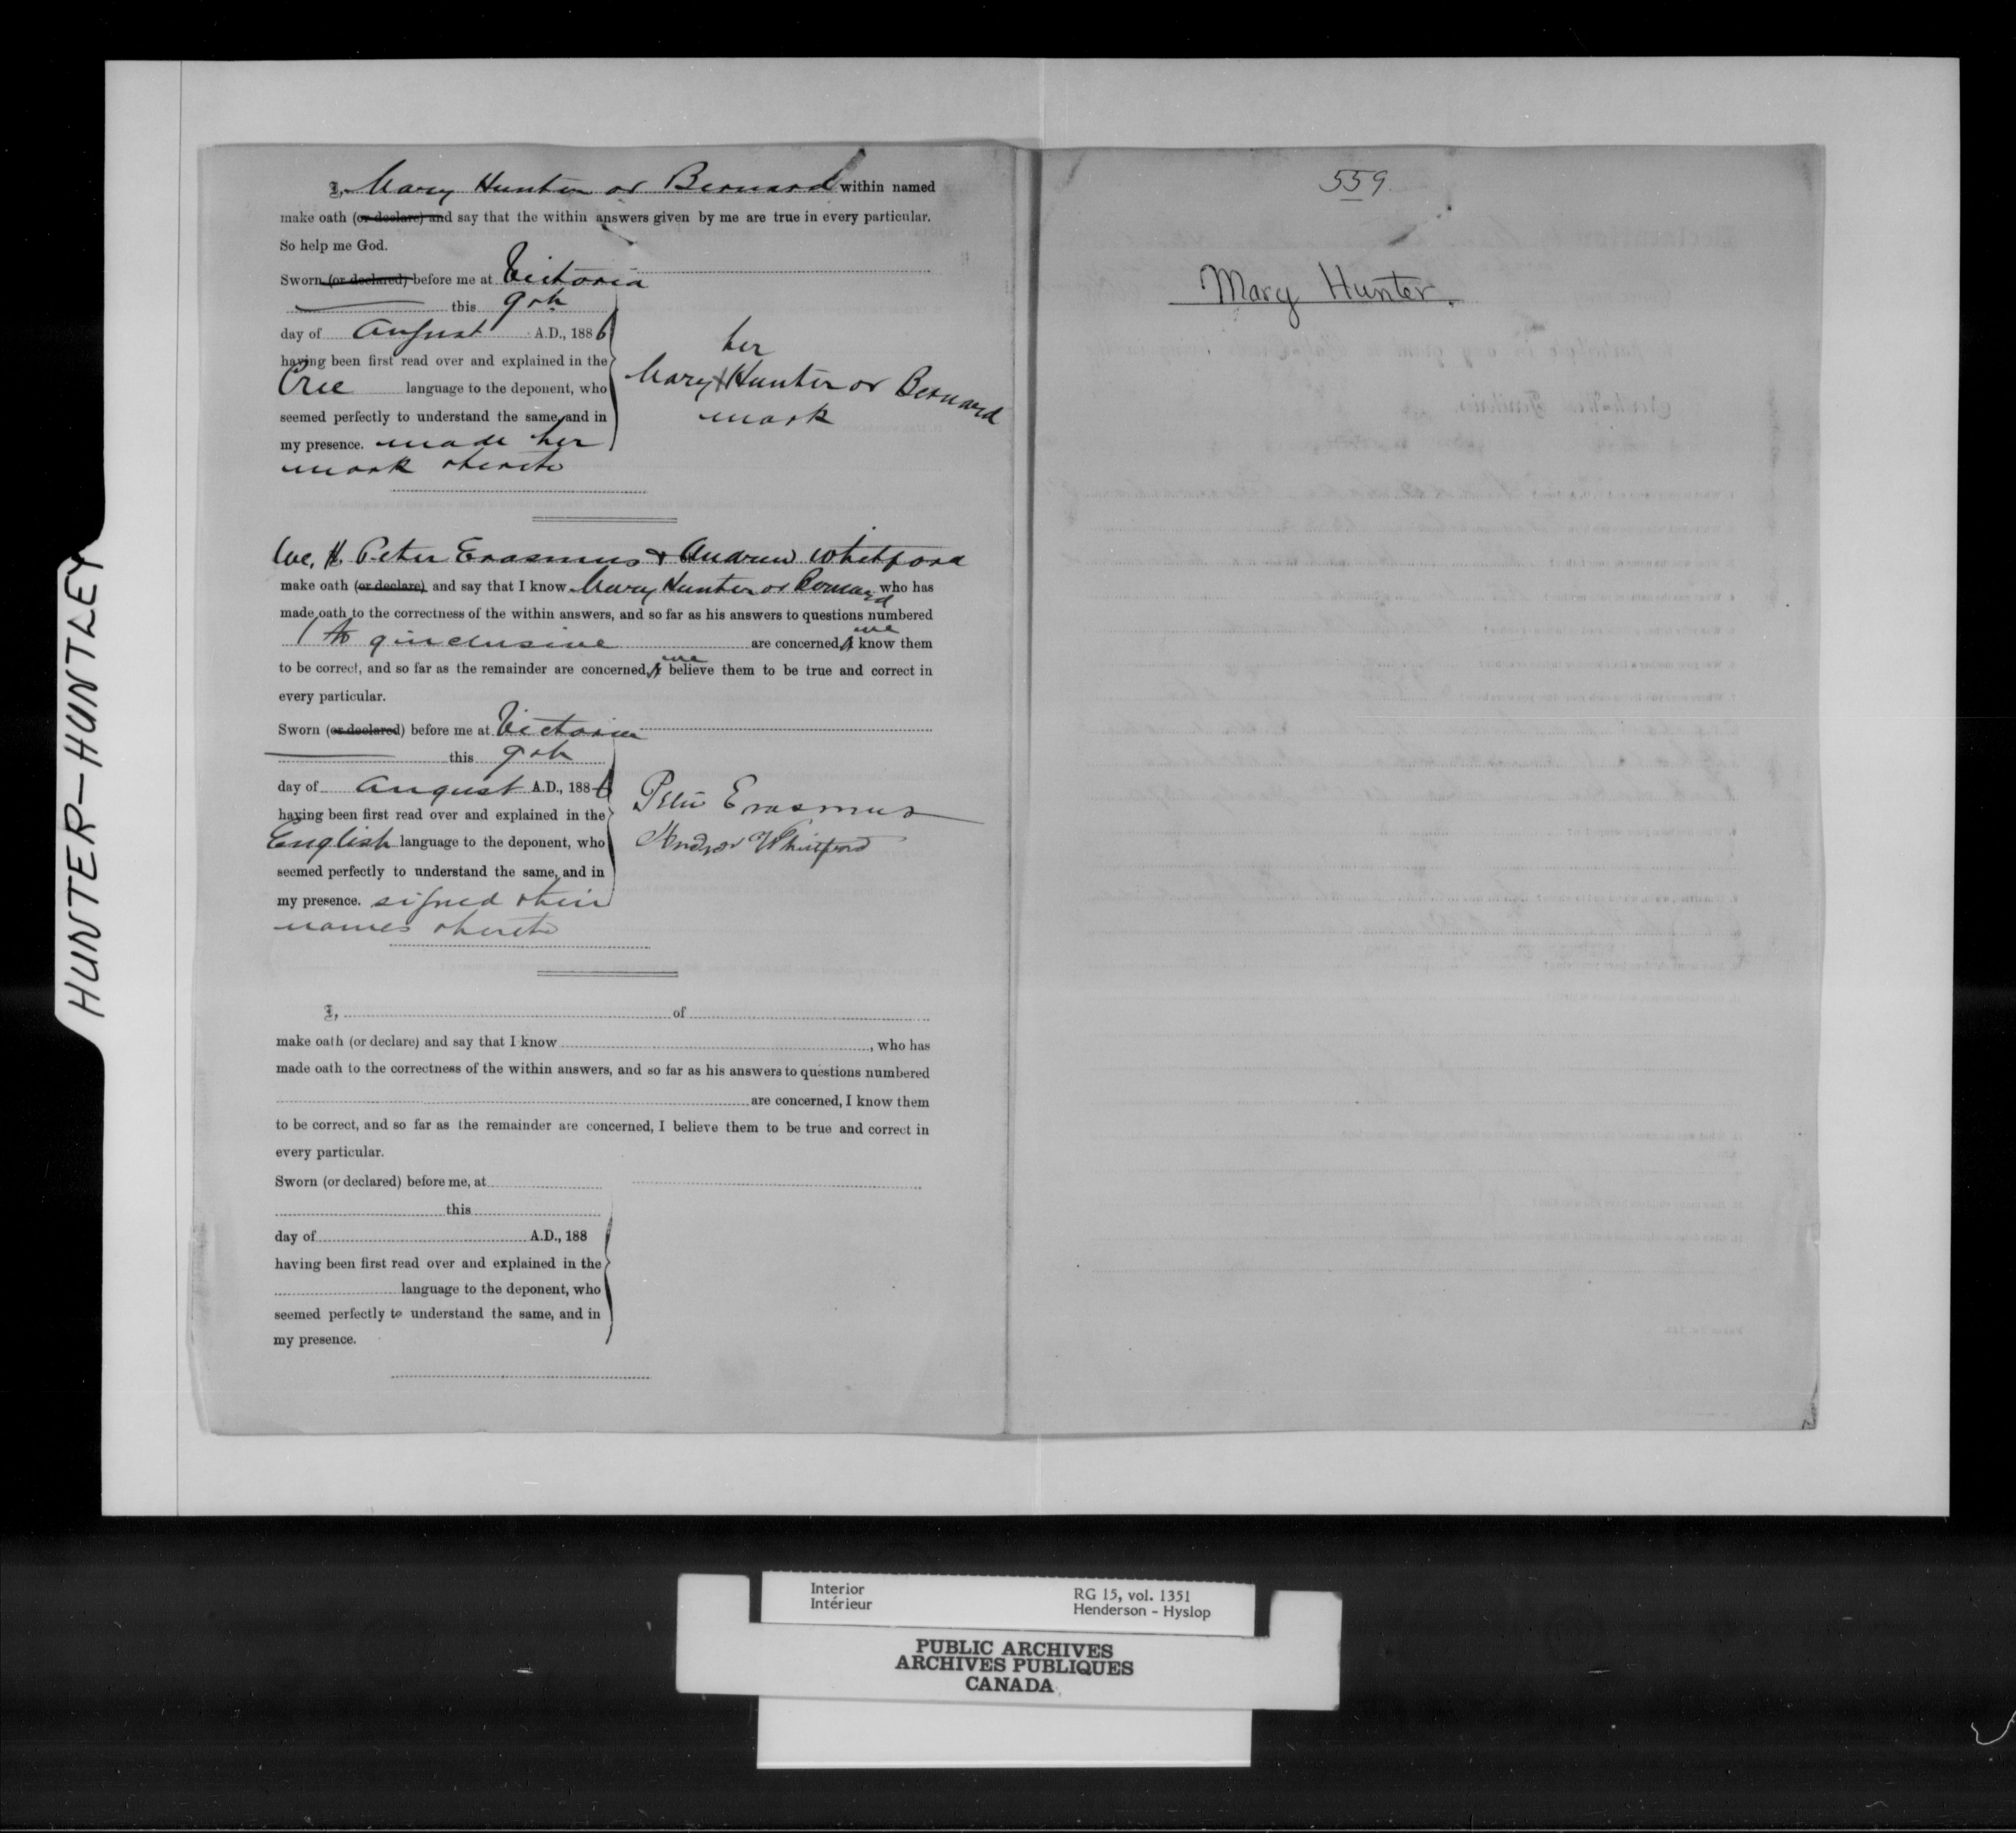 HUNTER—HUNTLEY
I, Mary Hunter or Bernard within named
make oath (or declare) and say that the within answers given by me are true in every particular.
So help me God.
Sworn (or declared) before me at Victoria
this 9th
day of August A.D., 1886
having been first read over and explained in the
Cree language to the deponent, who
seemed perfectly to understand the same, and in
my presence. made her
mark thereto
her
Mary X Hunter or Bernard
mark
We, I, Peter Erasmus & Andrew Whitford
make oath (or declare) and say that I know Mary Hunter or Bernard who has
made oath to the correctness of the within answers, and so far as his answers to questions numbered
1 to 9 inclusive are concerned, I we know them
to be correct, and so far as the remainder are concerned, I we believe them to be true and correct in
every particular.
Sworn (or declared) before me at Victoria
this 9th
day of August A.D., 1886
having been first read over and explained in the
English language to the deponent, who
seemed perfectly to understand the same, and in
my presence. signed their
names thereto
Peter Erasmus
Andrew Whitford
I, of
make oath (or declare) and say that I know , who has
made oath to the correctness of the within answers, and so far as his answers to questions numbered
are concerned, I know them
to be correct, and so far as the remainder are concerned, I believe them to be true and correct in
every particular.
Sworn (or declared) before me, at
this
day of A.D., 188
having been first read over and explained in the
language to the deponent, who
seemed perfectly to understand the same, and in
my presence.
559
Mary Hunter.
Interior
Intérieur
RG 15, vol. 1351
Henderson - Hyslop
PUBLIC ARCHIVES
ARCHIVES PUBLIQUES
CANADA